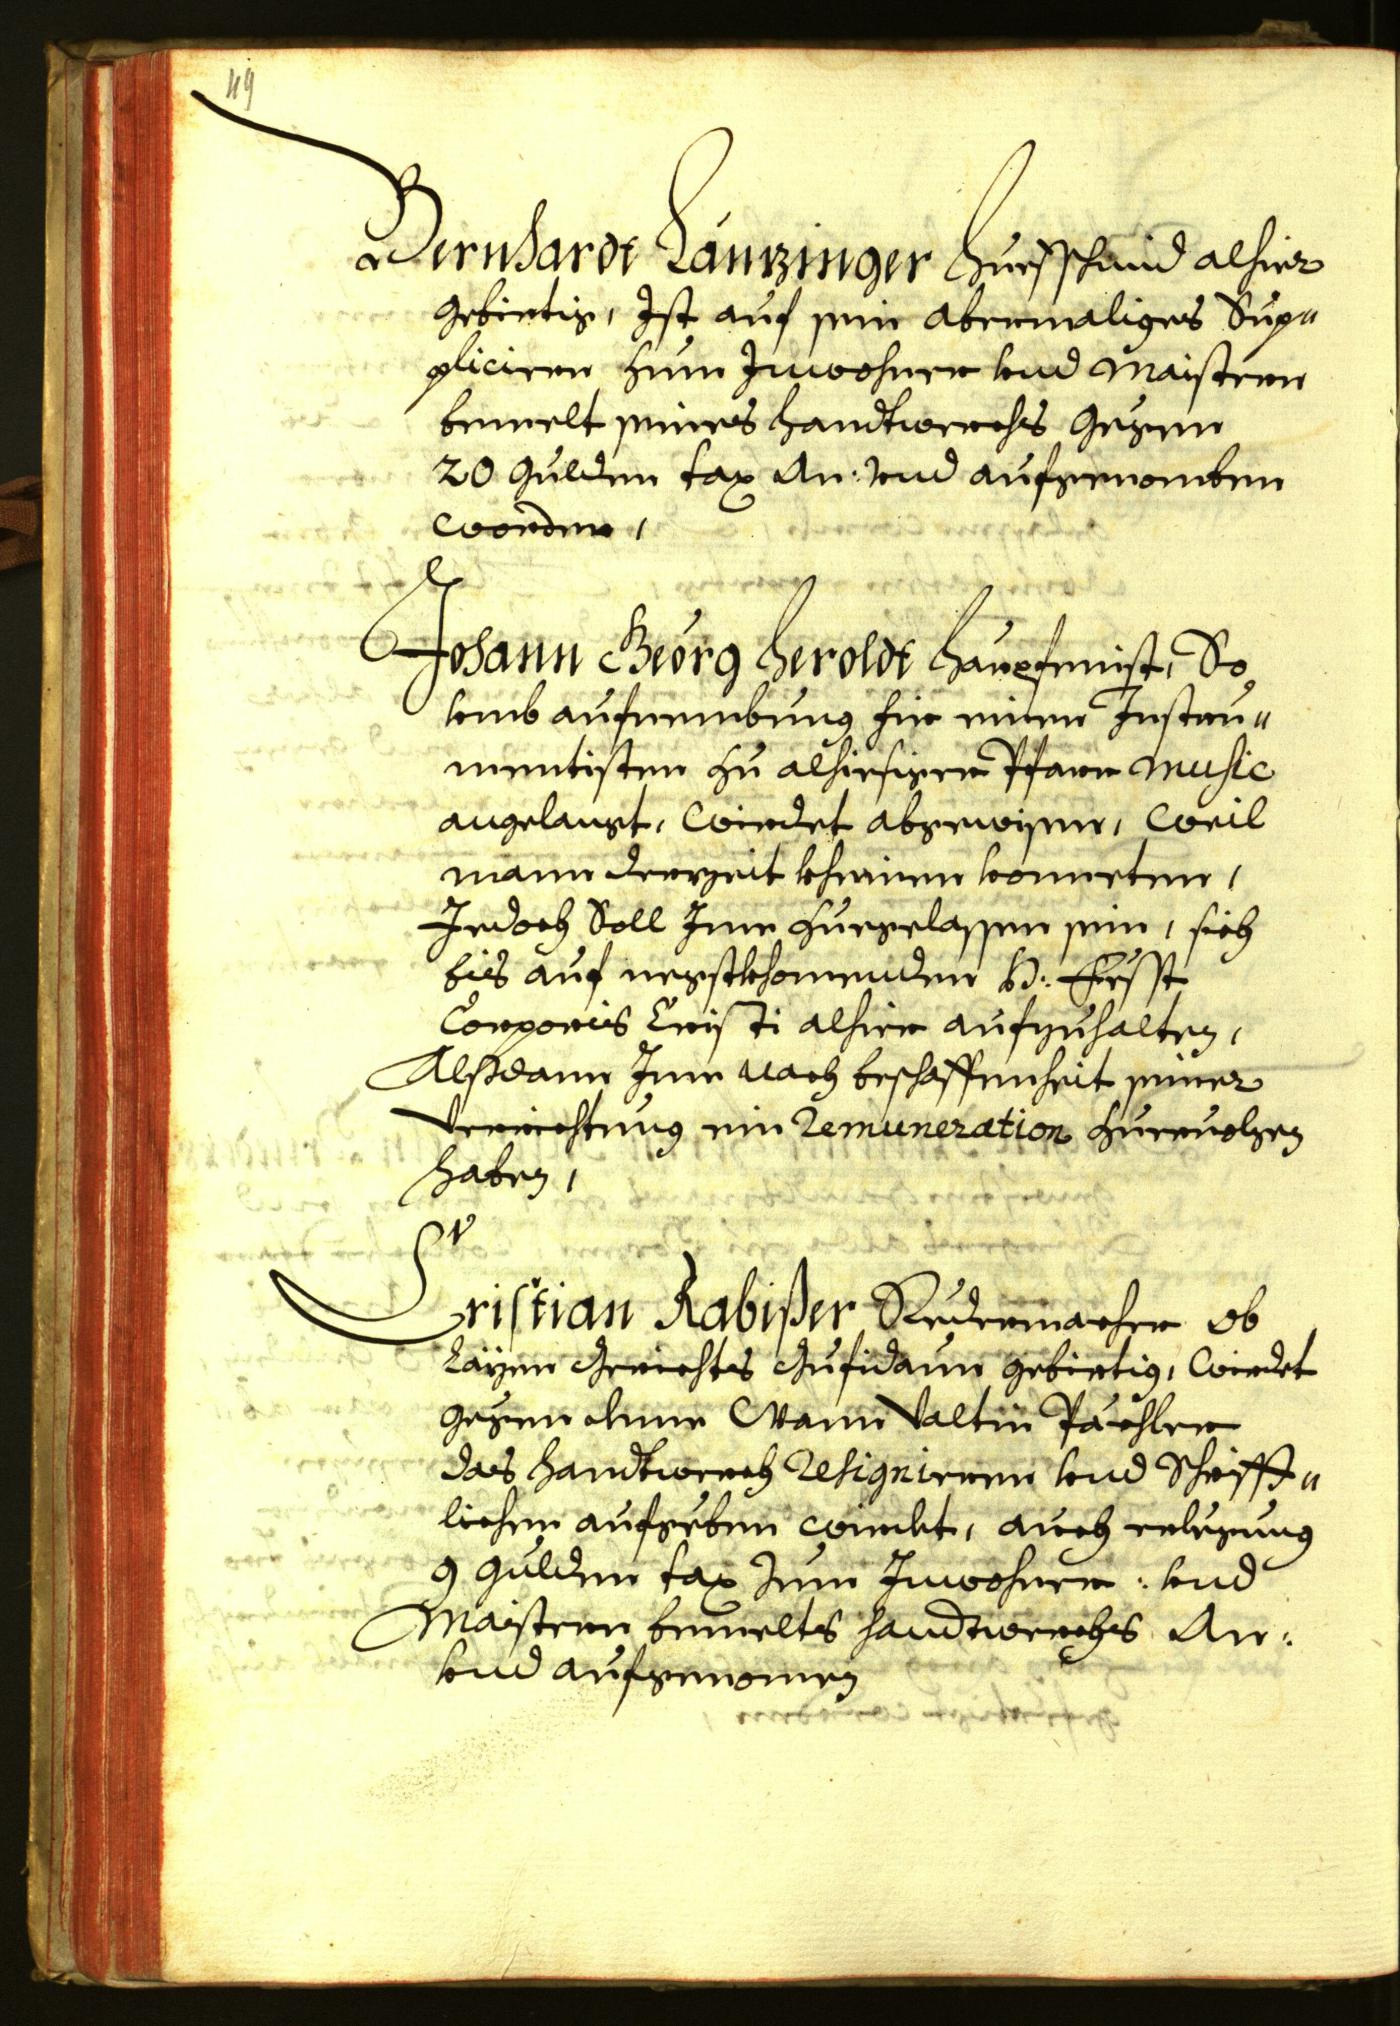 49
Bernhardt Läntzinger Huefschmid alhier
gebirtig, Ist auf sein abermaliges Sup„
pliciren zum Inwohner vnd Maistern
bemelt seines handtwerchs gegen
20 gulden tax An: vnd aufgenomben
worden,
Johann Georg Heroldt Harpfenist, So
vmb aufnembung für einen Instru„
mentisten zu alhiesiger Pfarr Music
angelangt, wirdet abgewisen, weil
mann derzeit kheinen vonneten,
Jedoch Soll Ime zuegelassen sein, sich
bis auf negstkhomenden H: Fesst
Corporis Cristi alhier aufzuhalten,
Alßdann Ime nach beschaffenheit seiner
verrichtung ein Remuneration zueruolgen
haben,
Cristian Rabißer Redermacher ob
Layen Gerichts Gufidaun gebirtig, wirdet
gegen deme Wann Valtin Pächler
das handtwerch Resignieren vnd Schrifft„
lichen aufgeben wirdet, auch erlegung
9 gulden tax zum Inwohner: vnd
Maistern bemelts handtwerchs An:
vnd aufgenomen